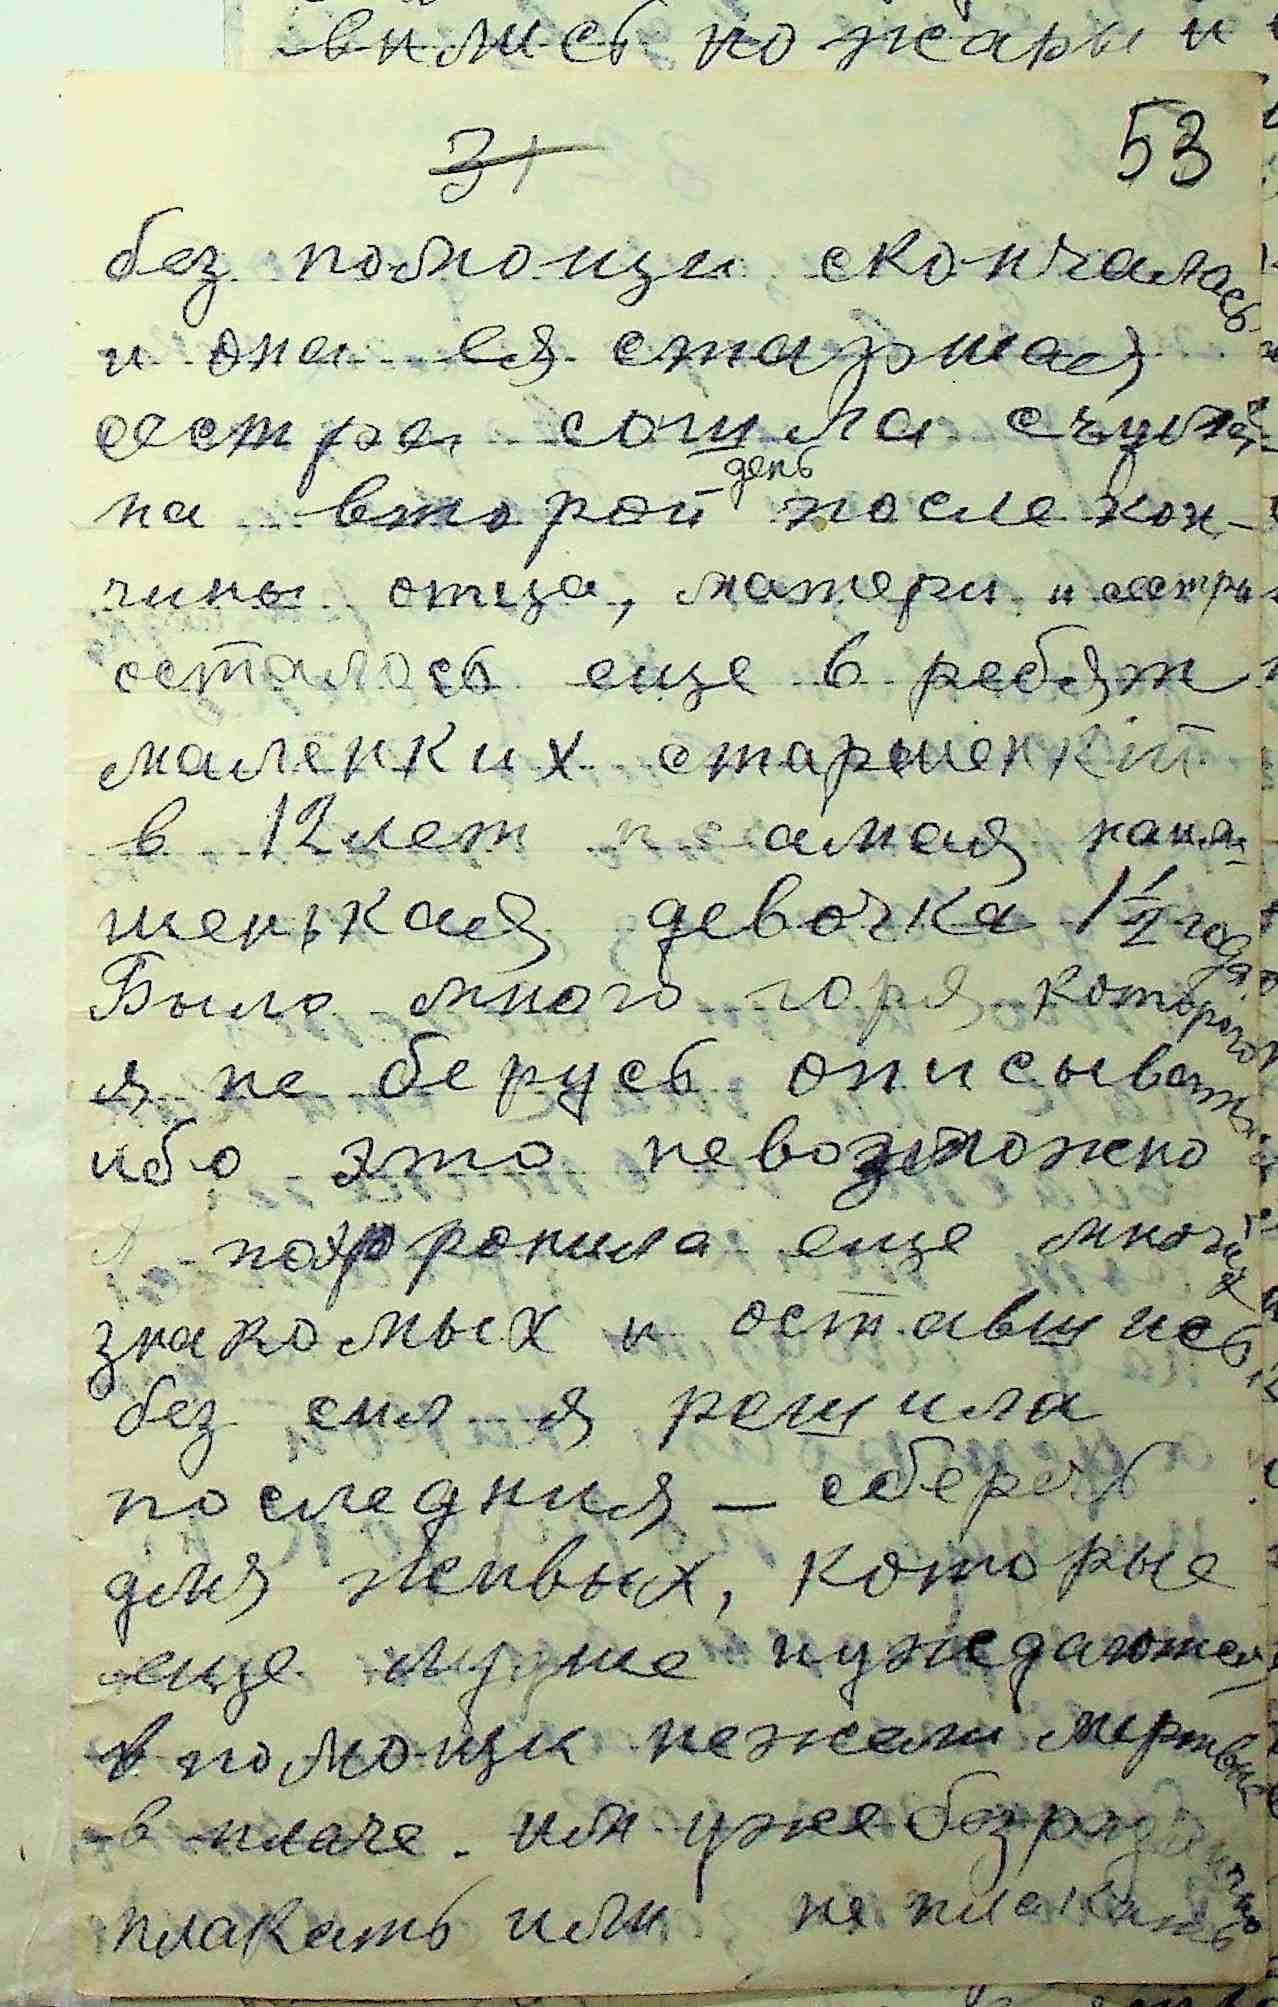 вились пожары и
31 53
без помощи скончалась
и она ея старшая
сестра сошла с ума
на второй день после кон-
чины отца, матери и сестры
осталось еще 6 ребят
маленких старшенкій
в 12 лет и самая мале-
шенькая девочка 1 1/2 года.
Было много горя которого
я не берусь описывать
ибо это невозможно
я похоронила еще многих
знакомых и оставшись
без сил я решила
последния — сберечь
для живых, которые
еще нуждаются
в помощи нежели мертвые
в плаче. Им уже безразлично
плакать или не плакать